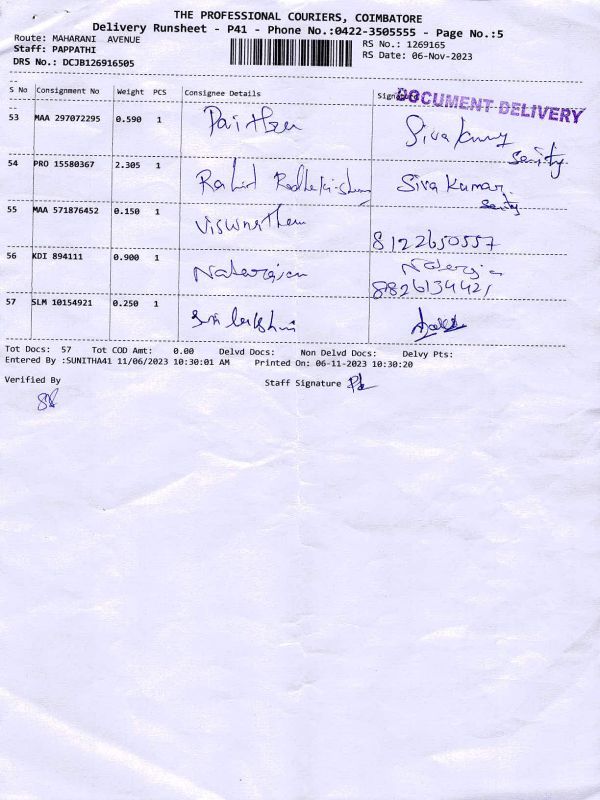 THE PROFESSIONAL COURIERS, COIMBATORE
Delivery Runsheet - P41 - Phone No.:0422-3505555 - Page No.:5
Route: MAHARANI AVENUE RS No.: 1269165
Staff: PAPPATHI RS Date: 06-Nov-2023
DRS No.: DCJB126916505
S No Consignment No Weight PCS Consignee Details Signature
DOCUMENT DELIVERY
53 MAA 297072295 0.590 1 Siva Kumar
Security
54 PRO 15580367 2.305 1 Radhakrishnan Siva Kumar
Security
55 MAA 571876452 0.150 1 Viswanathan
8122650557
56 KDI 894111 0.900 1 Natarajan Natarajan
8826134421
57 SLM 10154921 0.250 1 Sri lakshmi
Tot Docs: 57 Tot COD Amt: 0.00 Delvd Docs: Non Delvd Docs: Delvy Pts:
Entered By :SUNITHA41 11/06/2023 10:30:01 AM Printed On: 06-11-2023 10:30:20
Verified By Staff Signature